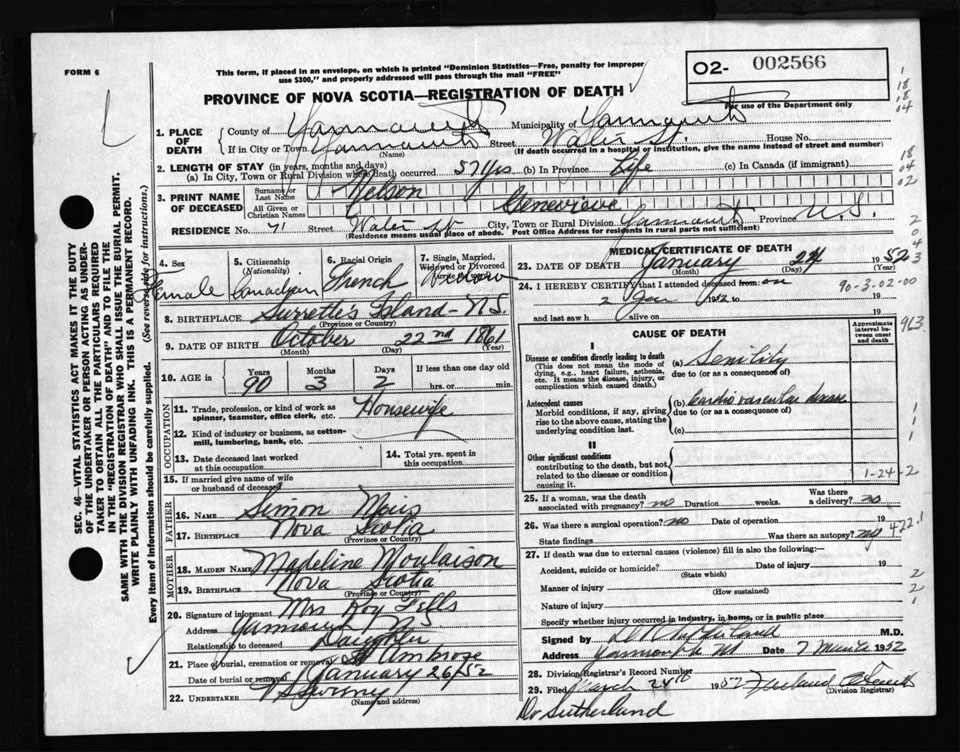 FORM 6
This form, if placed in an envelope, on which is printed "Dominion Statistics—Free, penalty for improper
use $300," and properly addressed will pass through the mail "FREE"
O2- 002566
For use of the Department only
PROVINCE OF NOVA SCOTIA—REGISTRATION OF DEATH
1. PLACE OF DEATH
County of Yarmouth Municipality of Yarmouth
If in City or Town Yarmouth (Name) Street Water St. House No.
(If death occurred in a hospital or institution, give the name instead of street and number)
2. LENGTH OF STAY (in years, months and days)
(a) In City, Town or Rural Division where death occurred 57 yrs (b) In Province Life (c) In Canada (if immigrant)
3. PRINT NAME OF DECEASED
Surname or Last Name Nelson
All Given or Christian Names Genevieve
RESIDENCE No. 71 Street Water St City, Town or Rural Division Yarmouth Province N.S.
(Residence means usual place of abode. Post Office Address for residents in rural parts not sufficient)
4. Sex Female
5. Citizenship (Nationality) Canadian
6. Racial Origin French
7. Single, Married, Widowed or Divorced Widow
8. BIRTHPLACE Surrette's Island - N.S.
(Province or Country)
9. DATE OF BIRTH October 22nd 1861
(Month) (Day) (Year)
10. AGE in Years 90 Months 3 Days 2 If less than one day
hrs. or min.
OCCUPATION
11. Trade, profession, or kind of work as
spinner, teamster, office clerk, etc. Housewife
12. Kind of industry or business, as cotton-
mill, lumbering, bank, etc.
13. Date deceased last worked
at this occupation
14. Total yrs. spent in
this occupation
15. If married give name of wife
or husband of deceased
FATHER
16. NAME Simon Muis
17. BIRTHPLACE Nova Scotia
(Province or Country)
MOTHER
18. MAIDEN NAME Madeline Moulaison
19. BIRTHPLACE Nova Scotia
(Province or Country)
20. Signature of informant Mrs Roy Fells
Address Yarmouth NS
Relationship to deceased Daughter
21. Place of burial, cremation or removal St Ambrose
Date of burial or removal January 26/52
22. UNDERTAKER V S Sweeny
(Name and address)
MEDICAL CERTIFICATE OF DEATH
23. DATE OF DEATH January 24 1952
(Month) (Day) (Year)
24. I HEREBY CERTIFY that I attended deceased from on
2 Jan 1952 to 19
and last saw h alive on 19
90-3-02-00
CAUSE OF DEATH
Approximate interval between onset and death
I
Disease or condition directly leading to death
(This does not mean the mode of
dying, e.g., heart failure, asthenia,
etc. It means the disease, injury, or
complication which caused death.)
(a) Senility
due to (or as a consequence of)
Antecedent causes
Morbid conditions, if any, giving
rise to the above cause, stating the
underlying condition last.
(b) Cardio vascular disease
due to (or as a consequence of)
(c)
II
Other significant conditions
contributing to the death, but not
related to the disease or condition
causing it.
1-24-2
25. If a woman, was the death
associated with pregnancy? no Duration weeks. Was there
a delivery? no
26. Was there surgical operation? no Date of operation 19
State findings Was there an autopsy? no
422.1
27. If death was due to external causes (violence) fill in also the following:—
Accident, suicide or homicide? Date of injury 19
(State which)
Manner of injury
(How sustained)
Nature of injury
Specify whether injury occurred in industry, in home, or in public place
Signed by M.D.
Address Yarmouth NS Date 7 March 1952
28. Division Registrar's Record Number
29. Filed March 24th 1952
(Division Registrar)
Dr Sutherland
SEC. 46—VITAL STATISTICS ACT MAKES IT THE DUTY
OF THE UNDERTAKER OR PERSON ACTING AS UNDER-
TAKER TO OBTAIN ALL THE PARTICULARS REQUIRED
IN THE "REGISTRATION OF DEATH" AND TO FILE THE
SAME WITH THE DIVISION REGISTRAR WHO SHALL ISSUE THE BURIAL PERMIT.
WRITE PLAINLY WITH UNFADING INK. THIS IS A PERMANENT RECORD.
Every item of information should be carefully supplied. (See reverse side for instructions.)